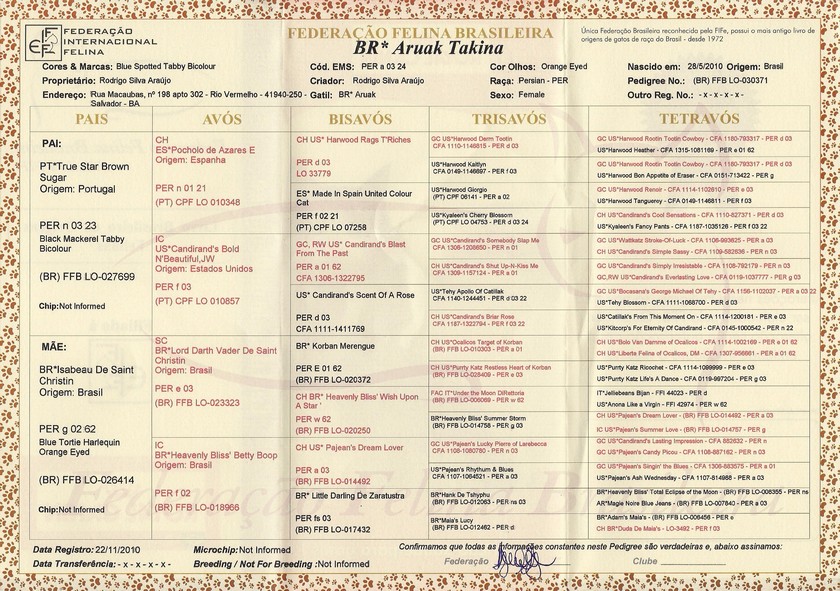 FEDERAÇÃO
INTERNACIONAL
FELINA
FEDERAÇÃO FELINA BRASILEIRA
BR* Aruak Takina
Única Federação Brasileira reconhecida pela FIFe, possui o mais antigo livro de
origens de gatos de raça do Brasil - desde 1972
Cores & Marcas: Blue Spotted Tabby Bicolour
Cód. EMS: PER a 03 24
Cor Olhos: Orange Eyed
Nascido em: 28/5/2010 Origem: Brasil
Proprietário: Rodrigo Silva Araújo
Criador: Rodrigo Silva Araújo
Raça: Persian - PER
Pedigree No.: (BR) FFB LO-030371
Endereço: Rua Macaubas, nº 198 apto 302 - Rio Vermelho - 41940-250 -
Salvador - BA
Gatil: BR* Aruak
Sexo: Female
Outro Reg. No.: - x - x - x - x -
PAIS
AVÓS
BISAVÓS
TRISAVÓS
TETRAVÓS
PAI:
PT*True Star Brown
Sugar
Origem: Portugal
PER n 03 23
Black Mackerel Tabby
Bicolour
(BR) FFB LO-027699
Chip:Not Informed
MÃE:
BR*Isabeau De Saint
Christin
Origem: Brasil
PER g 02 62
Blue Tortie Harlequin
Orange Eyed
(BR) FFB LO-026414
Chip:Not Informed
CH
ES*Pocholo de Azares E
Origem: Espanha
PER n 01 21
(PT) CPF LO 010348
IC
US*Candirand's Bold
N'Beautiful,JW
Origem: Estados Unidos
PER f 03
(PT) CPF LO 010857
SC
BR*Lord Darth Vader De Saint
Christin
Origem: Brasil
PER e 03
(BR) FFB LO-023323
IC
BR*Heavenly Bliss' Betty Boop
Origem: Brasil
PER f 02
(BR) FFB LO-018966
CH US* Harwood Rags T'Riches
PER d 03
LO 33779
ES* Made In Spain United Colour
Cat
PER f 02 21
(PT) CPF LO 07258
GC, RW US* Candirand's Blast
From The Past
PER a 01 62
CFA 1306-1322795
US* Candirand's Scent Of A Rose
PER d 03
CFA 1111-1411769
BR* Korban Merengue
PER E 01 62
(BR) FFB LO-020372
CH BR* Heavenly Bliss' Wish Upon
A Star '
PER w 62
(BR) FFB LO-020250
CH US* Pajean's Dream Lover
PER a 03
(BR) FFB LO-014492
BR* Little Darling De Zaratustra
PER fs 03
(BR) FFB LO-017432
GC US*Harwood Derm Tootin
CFA 1110-1146815 - PER d 03
US*Harwood Kaitlyn
CFA 0149-1146697 - PER f 03
US*Harwood Giorgio
(PT) CPF 06141 - PER a 02
US*Kyaleen's Cherry Blossom
(PT) CPF LO 04753 - PER d 03 24
GC US*Candirand's Somebody Slap Me
CFA 1308-1208650 - PER n 01
CH US*Candirand's Shut Up-N-Kiss Me
CFA 1309-1157124 - PER a 01
US*Tehy Apollo Of Catillak
CFA 1140-1244451 - PER d 03 22
CH US*Candirand's Briar Rose
CFA 1187-1322794 - PER f 03 22
CH US*Ocalicos Target of Korban
(BR) FFB LO-010303 - PER a 01
CH US*Purrty Katz Restless Heart of Korban
(BR) FFB LO-028409 - PER e 03
FAC IT*Under the Moon DiRettoria
(BR) FFB LO-006069 - PER w 62
BR*Heavenly Bliss' Summer Storm
(BR) FFB LO-014758 - PER g 03
GC US*Pajean's Lucky Pierre of Larebecca
CFA 1108-1080780 - PER n 03
US*Pajean's Rhythum & Blues
CFA 1107-1064521 - PER a 03
BR*Hank De Tshyphu
(BR) FFB LO-012063 - PER ns 03
BR*Maia's Lucy
(BR) FFB LO-012462 - PER d
GC US*Harwood Rootin Tootin Cowboy - CFA 1180-793317 - PER d 03
US*Harwood Heather - CFA 1315-1081169 - PER e 01 62
GC US*Harwood Rootin Tootin Cowboy - CFA 1180-793317 - PER d 03
US*Harwood Bon Appetite of Eraser - CFA 0151-713422 - PER g
GC US*Harwood Renoir - CFA 1114-1102810 - PER e 03
US*Harwood Tanguerey - CFA 0149-1146811 - PER f 03
CH US*Candirand's Cool Sensations - CFA 1110-827371 - PER d 03
US*Kyaleen's Fancy Pants - CFA 1187-1035126 - PER f 03 22
GC US*Wattikatz Stroke-Of-Luck - CFA 1106-993625 - PER a 03
CH US*Candirand's Simple Sassy - CFA 1109-582836 - PER n 03
GC US*Candirand's Simply Irresistable - CFA 1108-792179 - PER n 03
GC,RW US*Candirand's Everlasting Love - CFA 0119-1037777 - PER g 03
GC US*Bocasana's George Michael Of Tehy - CFA 1156-1102037 - PER a 03 22
US*Tehy Blossom - CFA 1111-1068700 - PER d 03
US*Catillak's From This Moment On - CFA 1114-1200181 - PER e 03
US*Kitcorp's For Eternity Of Candirand - CFA 0145-1000542 - PER n 22
CH US*Bolo Van Damme of Ocalicos - CFA 1114-1002169 - PER e 01 62
CH US*Liberte Felina of Ocalicos, DM - CFA 1307-956661 - PER a 01 62
US*Purrty Katz Ricochet - CFA 1114-1099999 - PER e 03
US*Purrty Katz Life's A Dance - CFA 0119-997204 - PER g 03
IT*Jelliebeans Bijan - FFI 44023 - PER d
US*Anona Like a Virgin - FFI 42974 - PER w 62
CH US*Pajean's Dream Lover - (BR) FFB LO-014492 - PER a 03
IC US*Pajean's Summer Love - (BR) FFB LO-014757 - PER g
GC US*Candirand's Lasting Impression - CFA 882632 - PER n
GC US*Pajean's Candy Picou - CFA 1106-887162 - PER n 03
GC US*Pajean's Singin' the Blues - CFA 1306-883575 - PER a 01
US*Pajean's Ash Wednesday - CFA 1107-814988 - PER a 03
BR*Heavenly Bliss' Total Eclipse of the Moon - (BR) FFB LO-006355 - PER ns
AR*Magie Noire Blue Jeans - (BR) FFB LO-007840 - PER a 03
BR*Adam's Maia's - (BR) FFB LO-006456 - PER e
CH BR*Duda De Maia's - LO-3492 - PER f 03
Data Registro: 22/11/2010
Microchip: Not Informed
Confirmamos que todas as informações constantes neste Pedigree são verdadeiras e, abaixo assinamos:
Data Transferência: - x - x - x - x -
Breeding / Not For Breeding :Not Informed
Federação
Clube